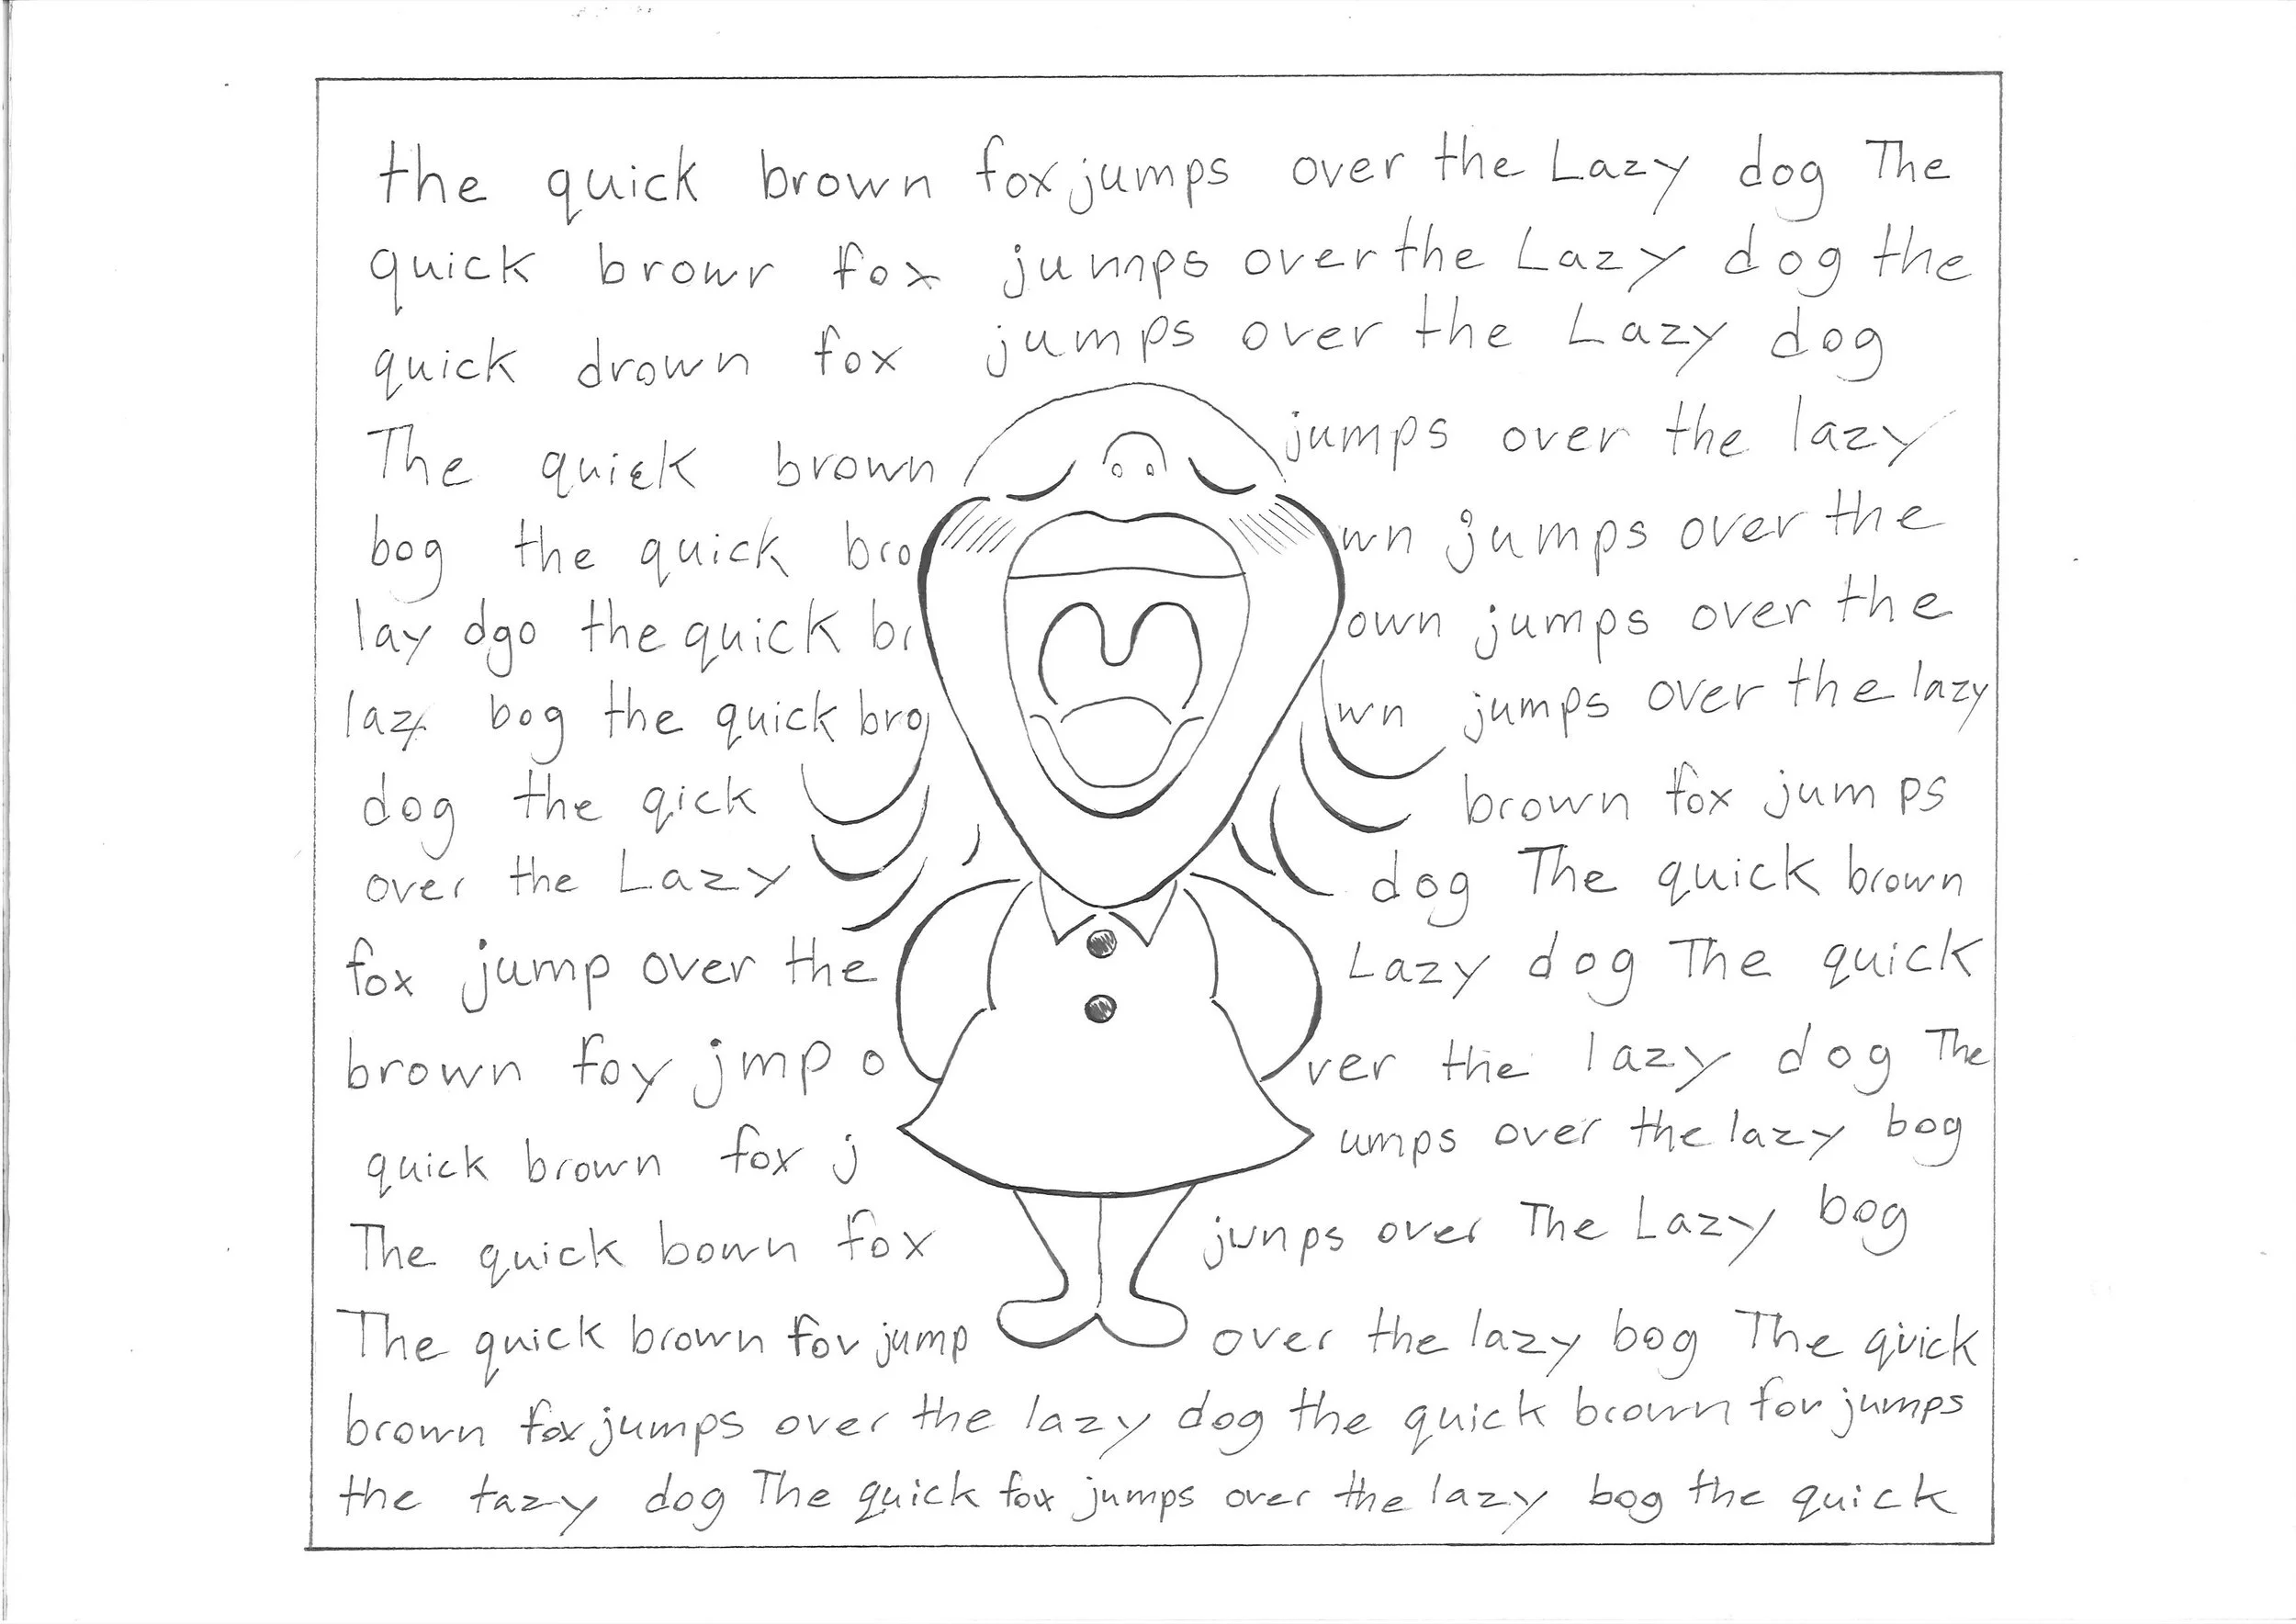 the quick brown fox jumps over the Lazy dog The
quick browr fox jumps over the Lazy dog the
quick drown fox jumps over the Lazy dog
The quick brown jumps over the lazy
bog the quick bro wn jumps over the
lay dgo the quick br own jumps over the
lazy bog the quick bro wn jumps over the lazy
dog the qick brown fox jumps
over the Lazy dog The quick brown
fox jump over the Lazy dog The quick
brown foy jmp o ver the lazy dog The
quick brown fox j umps over the lazy bog
The quick bown fox junps over The Lazy bog
The quick brown fov jump over the lazy bog The quick
brown fox jumps over the lazy dog the quick brown for jumps
the tazy dog The quick fox jumps over the lazy bog the quick